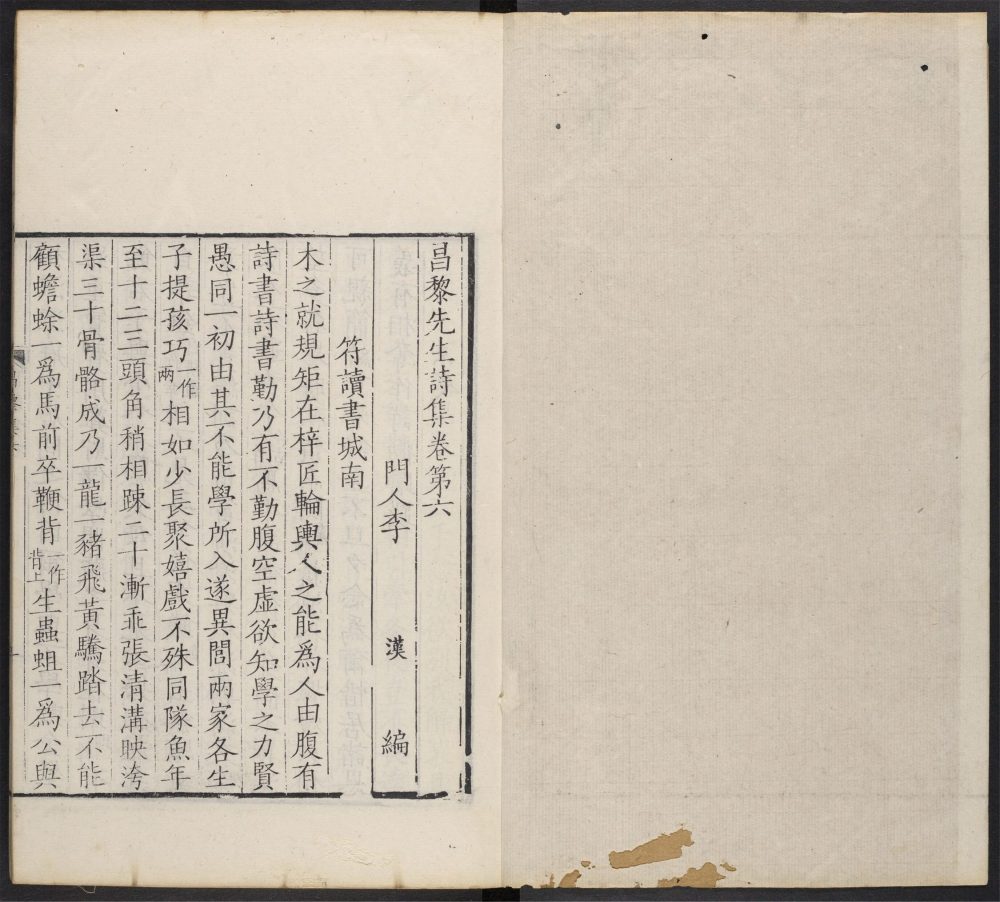 昌黎先生詩集卷第六
門人李 漢 編
符讀書城南
木之就規矩在梓匠輪輿人之能爲人由腹有
詩書詩書勤乃有不勤腹空虛欲知學之力賢
愚同一初由其不能學所入遂異閭兩家各生
子提孩巧一作兩相如少長聚嬉戲不殊同隊魚年
至十二三頭角稍相踈二十漸乖張清溝映洿
渠三十骨骼成乃一龍一豬飛黃騰踏去不能
顧蟾蜍一爲馬前卒鞭背一作背上生蟲蛆一爲公與